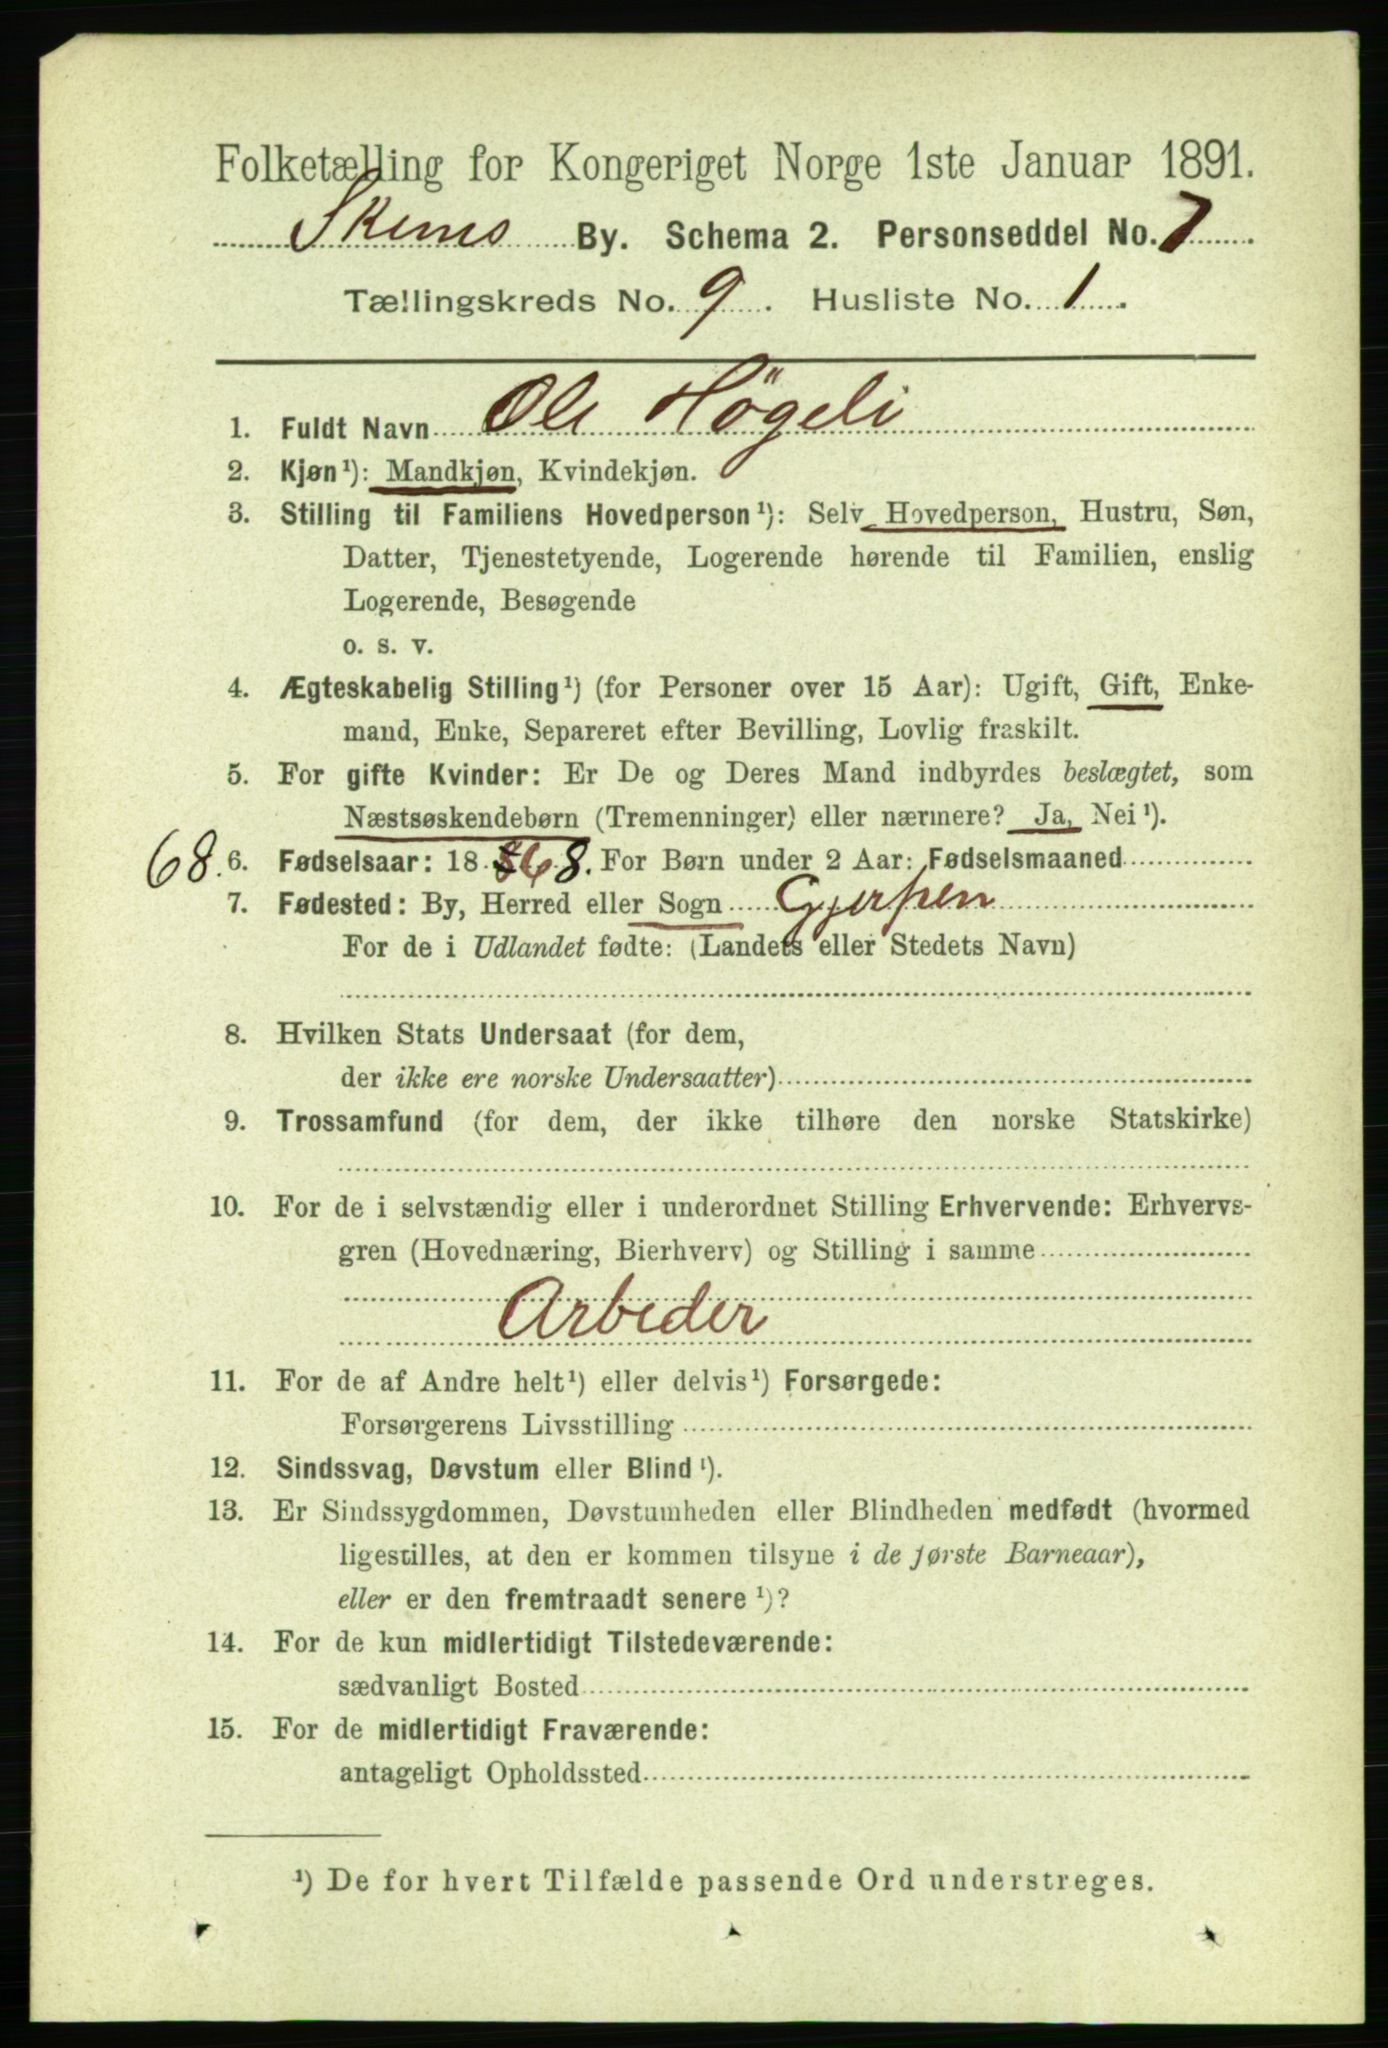 Folketælling for Kongeriget Norge 1ste Januar 1891.
Skiens By. Schema 2. Personseddel No. 7.
Tællingskreds No. 9. Husliste No. 1.
1. Fuldt Navn Ole Högeli
2. Kjøn¹): Mandkjøn, Kvindekjøn.
3. Stilling til Familiens Hovedperson¹): Selv Hovedperson, Hustru, Søn,
Datter, Tjenestetyende, Logerende hørende til Familien, enslig
Logerende, Besøgende
o. s. v.
4. Ægteskabelig Stilling¹) (for Personer over 15 Aar): Ugift, Gift, Enke-
mand, Enke, Separeret efter Bevilling, Lovlig fraskilt.
5. For gifte Kvinder: Er De og Deres Mand indbyrdes beslægtet, som
Næstsøskendebørn (Tremenninger) eller nærmere? Ja, Nei¹).
68. 6. Fødselsaar: 18 68. For Børn under 2 Aar: Fødselsmaaned
7. Fødested: By, Herred eller Sogn Gjerpen
For de i Udlandet fødte: (Landets eller Stedets Navn)
8. Hvilken Stats Undersaat (for dem,
der ikke ere norske Undersaatter)
9. Trossamfund (for dem, der ikke tilhøre den norske Statskirke)
10. For de i selvstændig eller i underordnet Stilling Erhvervende: Erhvervs-
gren (Hovednæring, Bierhverv) og Stilling i samme
Arbeder
11. For de af Andre helt¹) eller delvis¹) Forsørgede:
Forsørgerens Livsstilling
12. Sindssvag, Døvstum eller Blind¹).
13. Er Sindssygdommen, Døvstumheden eller Blindheden medfødt (hvormed
ligestilles, at den er kommen tilsyne i de første Barneaar),
eller er den fremtraadt senere¹)?
14. For de kun midlertidigt Tilstedeværende:
sædvanligt Bosted
15. For de midlertidigt Fraværende:
antageligt Opholdssted
¹) De for hvert Tilfælde passende Ord understreges.